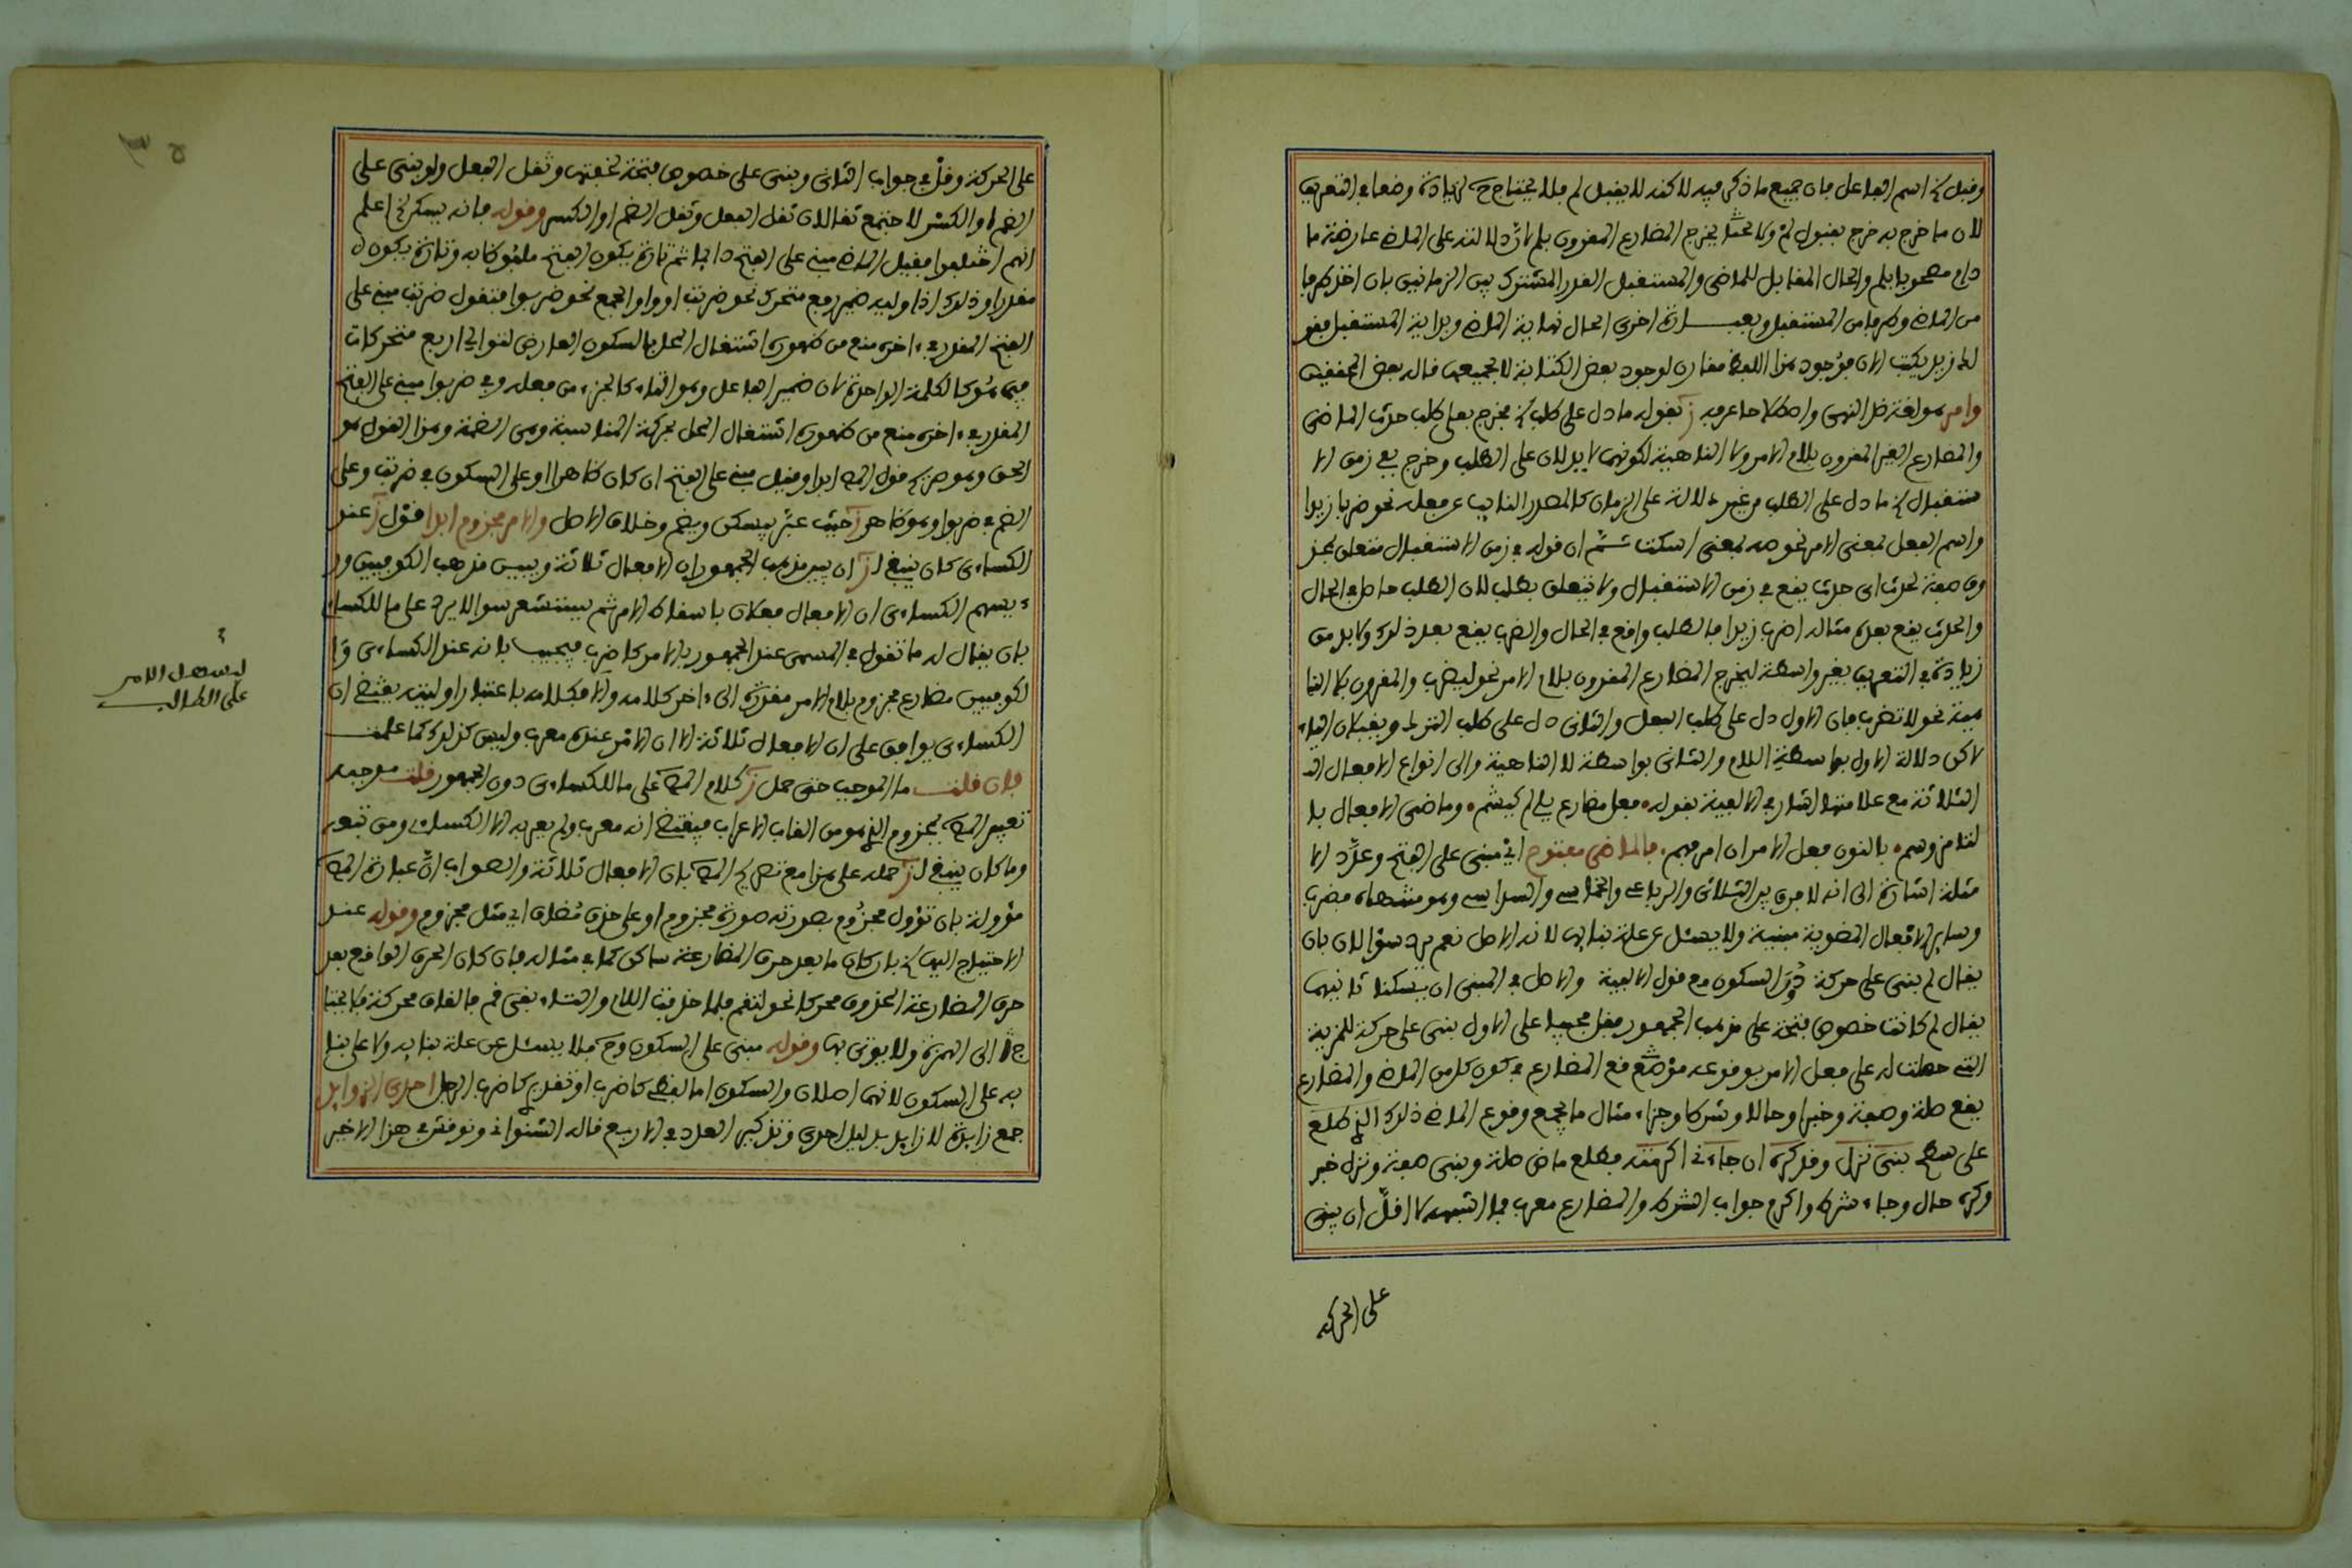 وقبل في اسم الفاعل فان جميع ما ذكر فيه لاكنه لا يقبل لم فلا يحتاج ح لزيادة وضعا في التعريف
لان ما خرج به خرج بقبول لم ولا يخرج المضارع المقرون بلم لان دلالته على الماضي عارضة ما
دام مصحوبا بلم والحال المقابل للماضي والمستقبل القدر المشترك بين الزمانين بان اخذ طرفا
من الماضي وطرفا من المستقبل وبعبارة اخرى الحال نهاية الماضي وبداية المستقبل فقو
لك زيد يكتب الان موجود هذا اللفظ مقارن لوجود بعض الكتابة لا لجميعها قاله بعض المحققين
وامر هو لغة ضد النهي واصطلاحا عرفه ز بقوله ما دل على طلب الخ فخرج بعلى طلب حدث الماضي
والمضارع الغير المقرون بلام الامر ولا الناهية لكونهما لا يدلان على الطلب وخرج بفي زمن الا
ستقبال الخ ما دل على الطلب من غير دلالة على الزمان كالمصدر النايب عن فعله نحو ضربا زيدا
واسم الفعل بمعنى الامر نحو صه بمعنى اسكت ثم ان قوله في زمن الاستقبال متعلق بمحذ
وف صفة لحدث اي حدث يقع في زمن الاستقبال ولا يتعلق بطلب لان الطلب حاصل في الحال
والحدث يقع بعده مثاله اضرب زيدا فالطلب واقع في الحال والضرب يقع بعد ذلك ولابد من
زيادة في التعريف بغير واسطة ليخرج المضارع المقرون بلام الامر نحو ليضرب والمقرون بلا النا
هية نحو لا تضرب فان الاول دل على طلب الفعل والثاني دل على طلب الترك ويقبلان الياء
لاكن دلالة الاول بواسطة اللام والثاني بواسطة لا الناهية والى انواع الافعال
الثلاثة مع علامتها اشار في الالفية بقوله فعل مضارع يلي لم كيشم وماضي الافعال با
لتا مز وسم بالنون فعل الامر ان امر فهم فالماضي مفتوح اي مبني على الفتح وعدد الا
مثلة اشارة الى انه لا فرق بين الثلاثي والرباعي والخماسي والسداسي وهو منتهاه فضرب
وساير الافعال الماضوية مبنية ولا يسئل عن علة بنايها لانه الاصل نعم يرد سؤالان بان
يقال لم بني على حركة دون السكون مع قول الالفية والاصل في المبني ان يسكنا ثانيهما
يقال لم كانت خصوص فتحة على مذهب الجمهور فقل مجيبا على الاول بني على حركة للمزية
التي حصلت له على فعل الامر بوقوعه موقع المضارع في كون كل من الماضي والمضارع
يقع صلة وصفة وخبرا وحالا وشرطا وجزاء مثال ما يجمع وقوع الماضي ذلك الذي طلع
على سطح بنى نزل وقد كره ان جاءني اكرمته فطلع ماض صلة وبنى صفة ونزل خبر
وكره حال وجاء شرط واكرم جواب الشرط والمضارع معرب فما اشبهه لا اقل ان يبنى
على الحركة
على الحركة وقل في جواب الثاني وبني على خصوص فتحة لخفتها وثقل الفعل ولو بني على
الضم او الكسر لاجتمع ثقالان ثقل الفعل وثقل الضم او الكسر وقوله فانه يسكن الخ اعلم
انهم اختلفوا فقيل الماضي مبني على الفتح دايما ثم تارة يكون الفتح ملفوظا به وتارة يكون
مقدرا وذلك اذا وليه ضمير رفع متحرك نحو ضربت او واو الجمع نحو ضربوا فتقول ضربت مبني على
الفتح المقدر في اخره منع من ظهوره اشتغال المحل بالسكون العارض لتوالي اربع متحركات
فيما هو كالكلمة الواحدة لان ضمير الفاعل وهو التاء كالجزء من فعله وفي ضربوا مبني على الفتح
المقدر في اخره منع من ظهوره اشتغال المحل بحركة المناسبة وهي الضمة وهذا القول هو
الحق وهو صريح قول المص ابدا وقيل مبني على الفتح ان كان ظاهرا او على السكون في ضربت وعلى
الضم في ضربوا وهو ظاهر ز حيث عبر بيسكن ويضم وخلاف الاصل والامر مجزوم ابدا قول ز عند
الكساءي كان ينبغي لز ان يبين مذهب الجمهور ان الافعال ثلاثة ويبين مذهب الكوفيين ور
ءيسهم الكساءي ان الافعال فعلان باسقاط الامر ثم يستشعر سوالا يرد على ما للكساء
بان يقال له ما تقول في المسمى عند الجمهور بالامر كاضرب فيجيب بانه عند الكساءي وا
لكوفيين مضارع مجزوم بلام الامر مقدرة الى ءاخر كلامه والا فكلامه باعتبار اوليته يقتضي ان
الكساءي يوافق على ان الافعال ثلاثة الا ان الامر عنده معرب وليس كذلك كما علمت
فان قلت ما الموجب حتى حمل ز كلام المص على ما للكساءي دون الجمهور قلت موجبه
تعبير المص بمجزوم الذي هو من القاب الاعراب فيقتضي انه معرب ولم يعربه الا الكساءي ومن تبعه
وما كان ينبغي لز حمله على هذا مع تصريح المص بان الافعال ثلاثة والصواب ان عبارة المص
مؤولة بان تؤول مجزوم بصورته صورة مجزوم او على حذف مضاف اي مثل مجزوم وقوله عند
الاحتياج اليها الخ بان كان ما بعد حرف المضارعة ساكن كما في مثاله فان كان الحرف الواقع بعد
حرف المضارعة المحذوف محركا نحو لتقم فلما حذفت اللام والتاء بقي قم فالقاف محركة فلا يحتا
ج الى الهمزة ولا يوتى بها وقوله مبني على السكون وح فلا يسئل عن علة بنايه ولا على بنا
يه على السكون لانهما اصلان والسكون اما لفظي كاضرب او تقديري كاضرب الرجل احدى الزوايد
جمع زايدة لا زايد بدليل احدى وتذكير العدد في الاربع قاله الشنواني ونوقش في هذا الاخير
ليسهل الامر
على الطالب